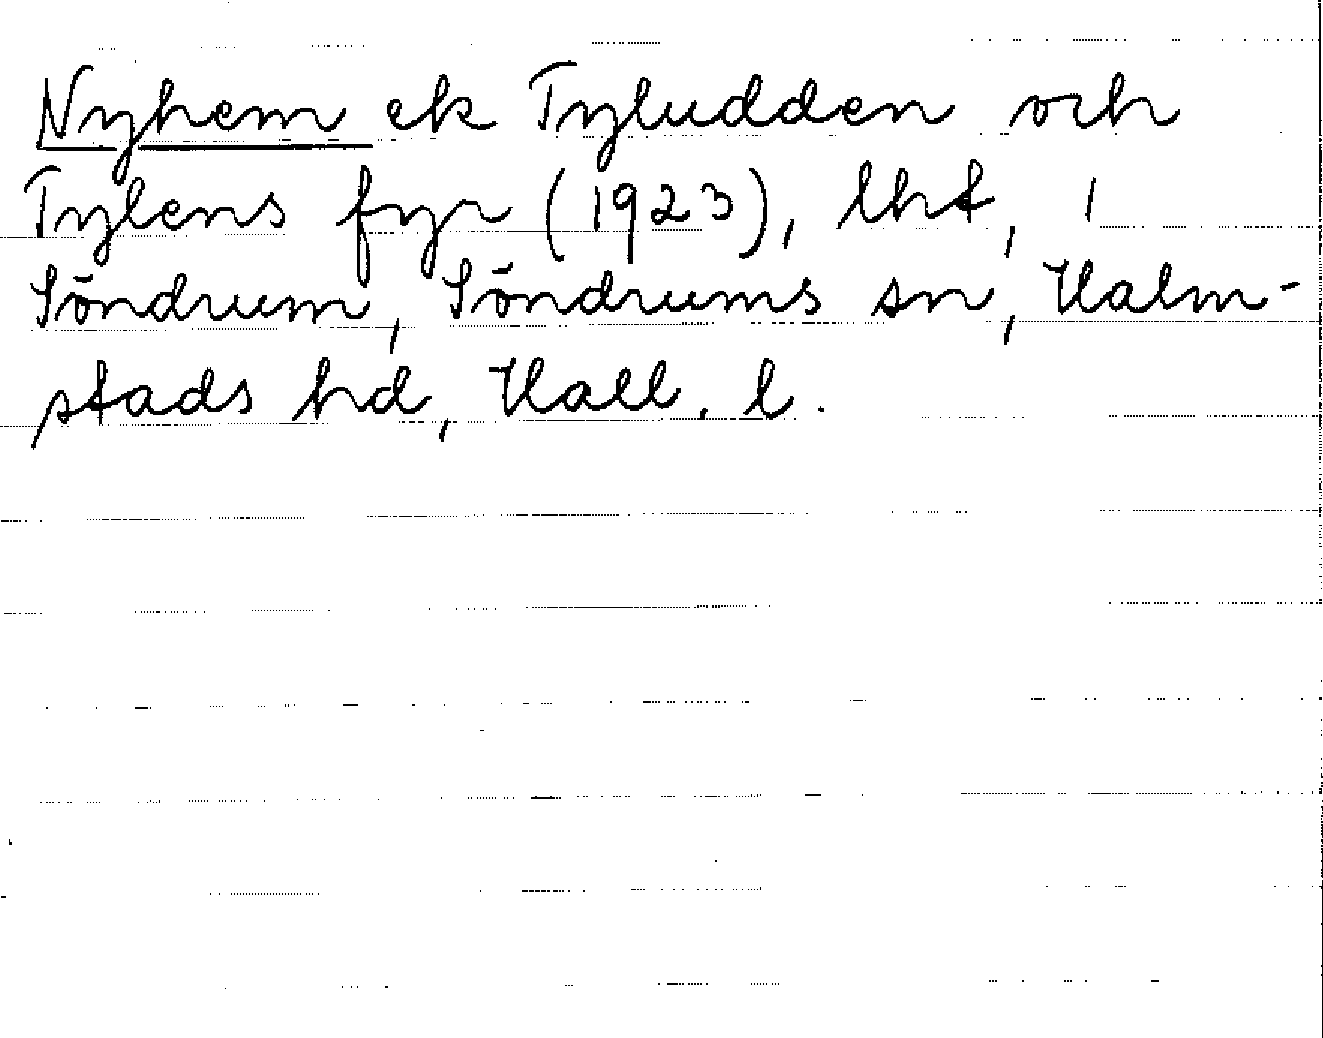 Nyhem ek Tyludden och
Tylens fyr (1923), lht, i
Söndrum, Söndrums sn, Halm-
stads hd, Hall. l.